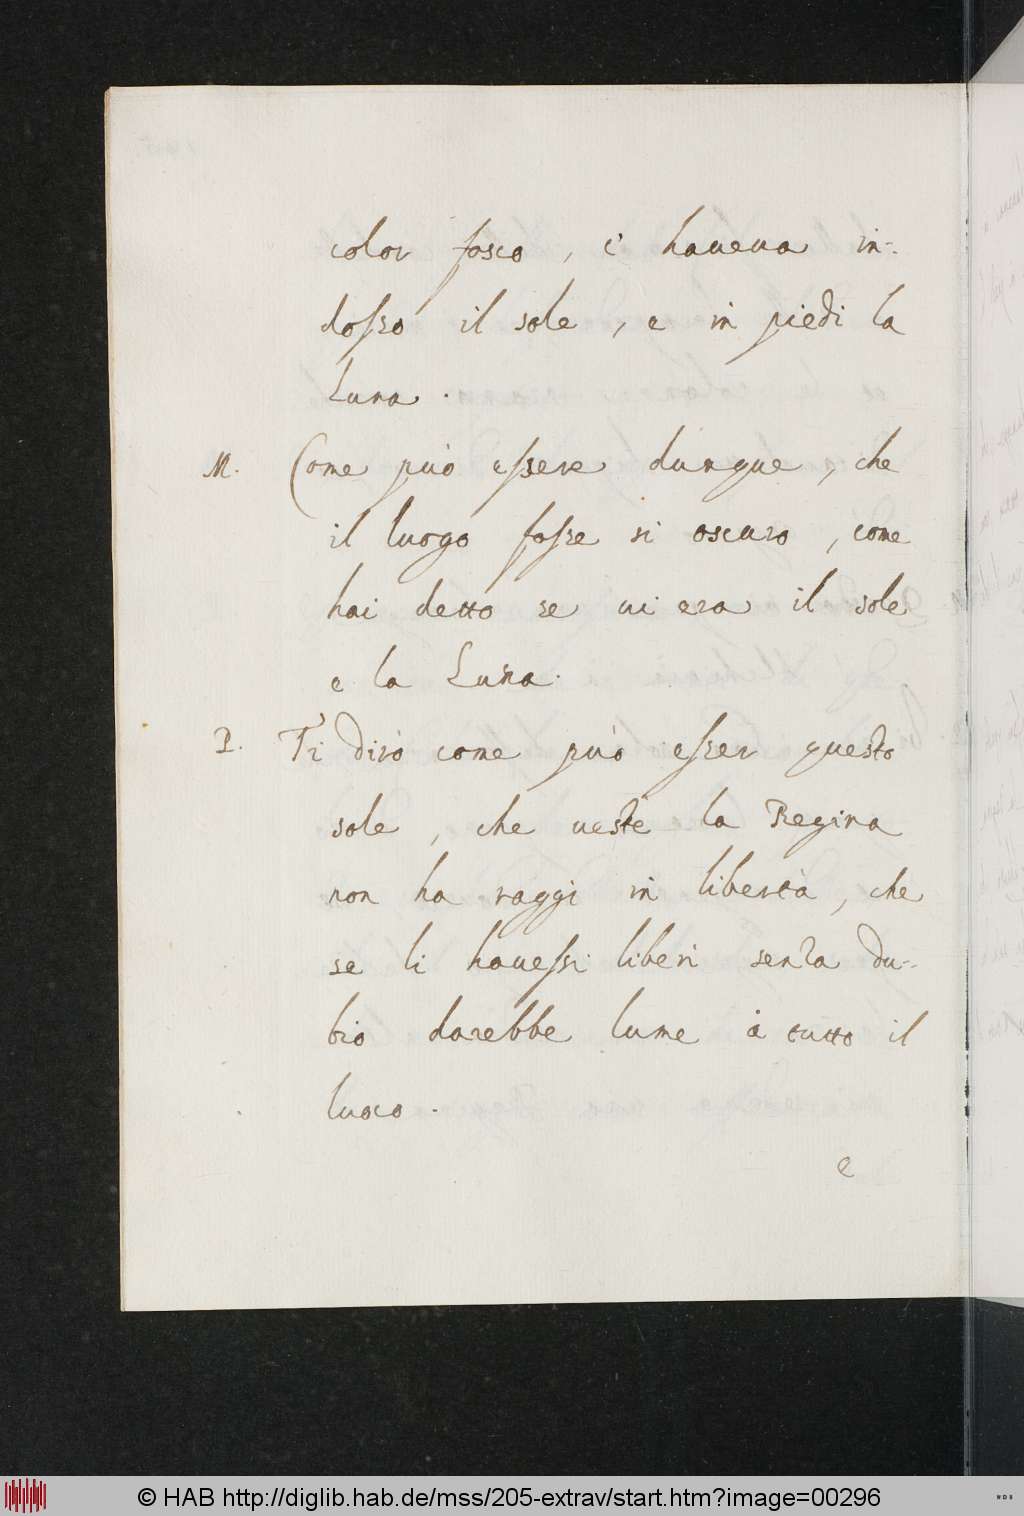 color fosco, e' haueua in-
dosso il sole, e in piedi la
Luna.
M. Come può essere dunque, che
il luogo fosse si oscuro, come
hai detto se ui era il sole
e la Luna.
P. Ti dirò come può esser questo
sole, che ueste la Regina
non ha raggi in libertà, che
se li hauessi liberi senza du-
bio darebbe lume à tutto il
luoco.
e
© HAB http://diglib.hab.de/mss/205-extrav/start.htm?image=00296